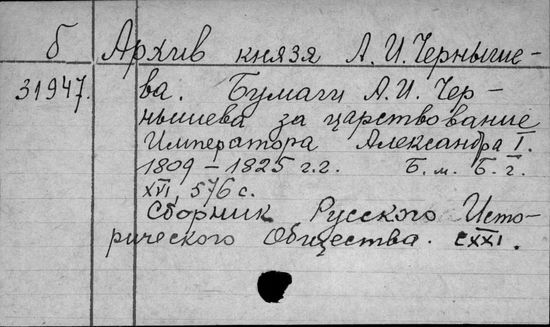 б Архив князя А. И. Черныше-
31947. ва. Бумаги А. И. Чер-
нышева за царствование
Императора Александра I.
1809 – 1825 г.г. Б. м. Б. г.
XVI, 576 с.
Сборник Русского Исто-
рического Общества. CXXI.